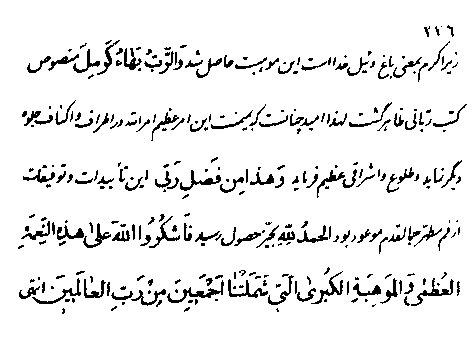 ۲۲۶
زیرا کرم بمعنی باغ و ئیل خدا است این موهبت حاصل شد وَالرَّبُّ بَهَاءُ كَرْمِلَ منصوص
کتب ربّانی ظاهر گشت لهذا امید چنانست که بمیمنت این امر عظیم امرالله در اطراف و اکناف جلوه
دیگر نماید و طلوع و اشراقی عظیم فرماید وَ هَذا مِن فَضلِ رَبّی این تأییدات و توفیقات
از فم مطهّر جمالقدم موعود بود الحمدُ لله بحیّز حصول رسید فَاشْكُرُوا اللهَ عَلىٰ هذِهِ النِّعمَةِ
العُظمٰى وَ المَوهِبَةِ الكُبرىٰ الَّتى شَمَلَتْنا اَجْمَعِينَ مِنْ رَبِّ العالَمينَ انتهی